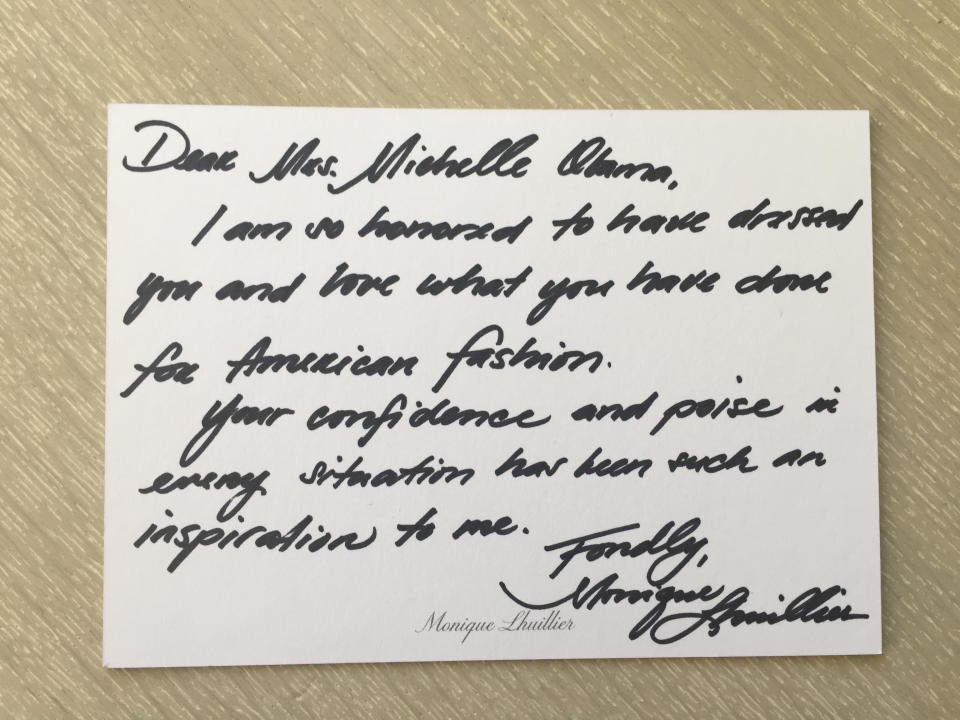 Dear Mrs. Michelle Obama,
I am so honored to have dressed
you and love what you have done
for American fashion.
Your confidence and poise in
every situation has been such an
inspiration to me.
Fondly,
Monique Lhuillier
Monique Lhuillier